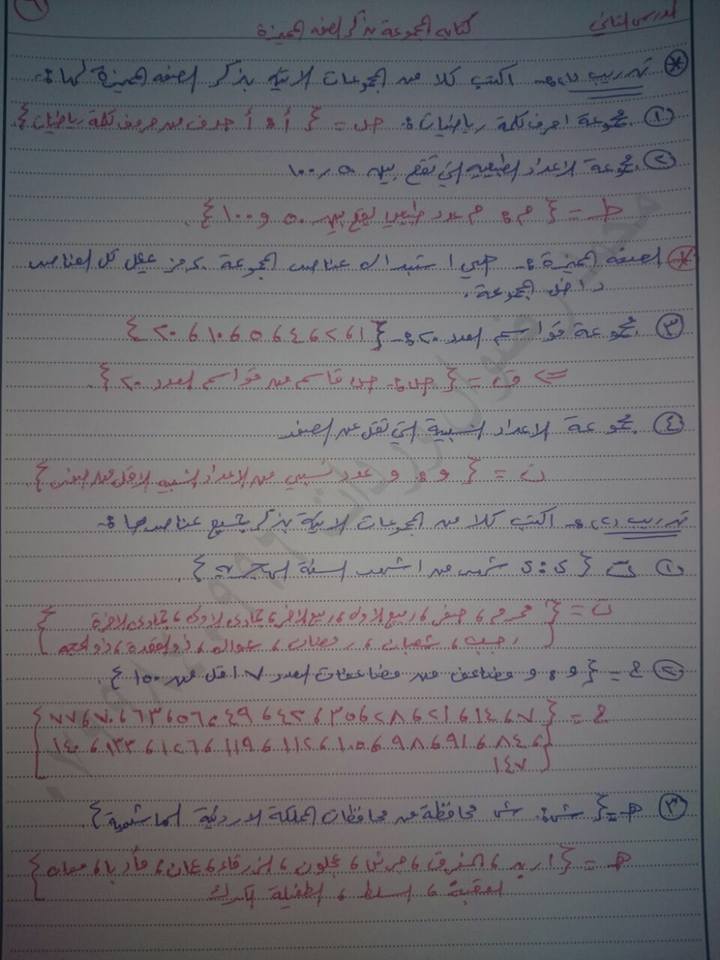 ٦
الدرس الثاني كتابة المجموعة بذكر الصفة المميزة
* تدريب (١): اكتب كلا من المجموعات الاتية بذكر الصفة المميزة لها:
١ مجموعة احرف كلمة رياضيات: ص = { أ : أ حرف من حروف كلمة رياضيات }.
٢ مجموعة الاعداد الطبيعية التي تقع بين ٥٠ و ١٠٠
ط = { م : م عدد طبيعي يقع بين ٥٠ و ١٠٠ }.
* الصفة المميزة: هي استبدال عناصر المجموعة برمز يمثل كل العناصر
داخل المجموعة.
٣ مجموعة قواسم العدد ٢٠ : { ١ ، ٢ ، ٤ ، ٥ ، ١٠ ، ٢٠ }
<= ق = { ص : ص قاسم من قواسم العدد ٢٠ }.
٤ مجموعة الاعداد النسبية التي تقل عن الصفر
ن = { و : و عدد نسبي من الاعداد النسبية الاقل من الصفر }
تدريب (٢): اكتب كلا من المجموعات الاتية بذكر جميع عناصرها:
١ ت { د : د شهر من اشهر السنة الهجرية }.
ت = { محرم ، صفر ، ربيع الاول ، ربيع الاخر ، جمادى الاولى ، جمادى الاخرة
رجب ، شعبان ، رمضان ، شوال ، ذو القعدة ، ذو الحجة }
٢ ع = { و : و مضاعف من مضاعفات العدد ٧ اقل من ١٥٠ }.
ع = { ٧ ، ١٤ ، ٢١ ، ٢٨ ، ٣٥ ، ٤٢ ، ٤٩ ، ٥٦ ، ٦٣ ، ٧٠ ، ٧٧
، ٨٤ ، ٩١ ، ٩٨ ، ١٠٥ ، ١١٢ ، ١١٩ ، ١٢٦ ، ١٣٣ ، ١٤٠
١٤٧ }
٣ هـ = { ش : ش محافظة من محافظات المملكة الاردنية الهاشمية }.
هـ = { اربد ، المفرق ، جرش ، عجلون ، الزرقاء ، عمان ، مأدبا ، معان
العقبة ، السلط ، الطفيلة ، الكرك }